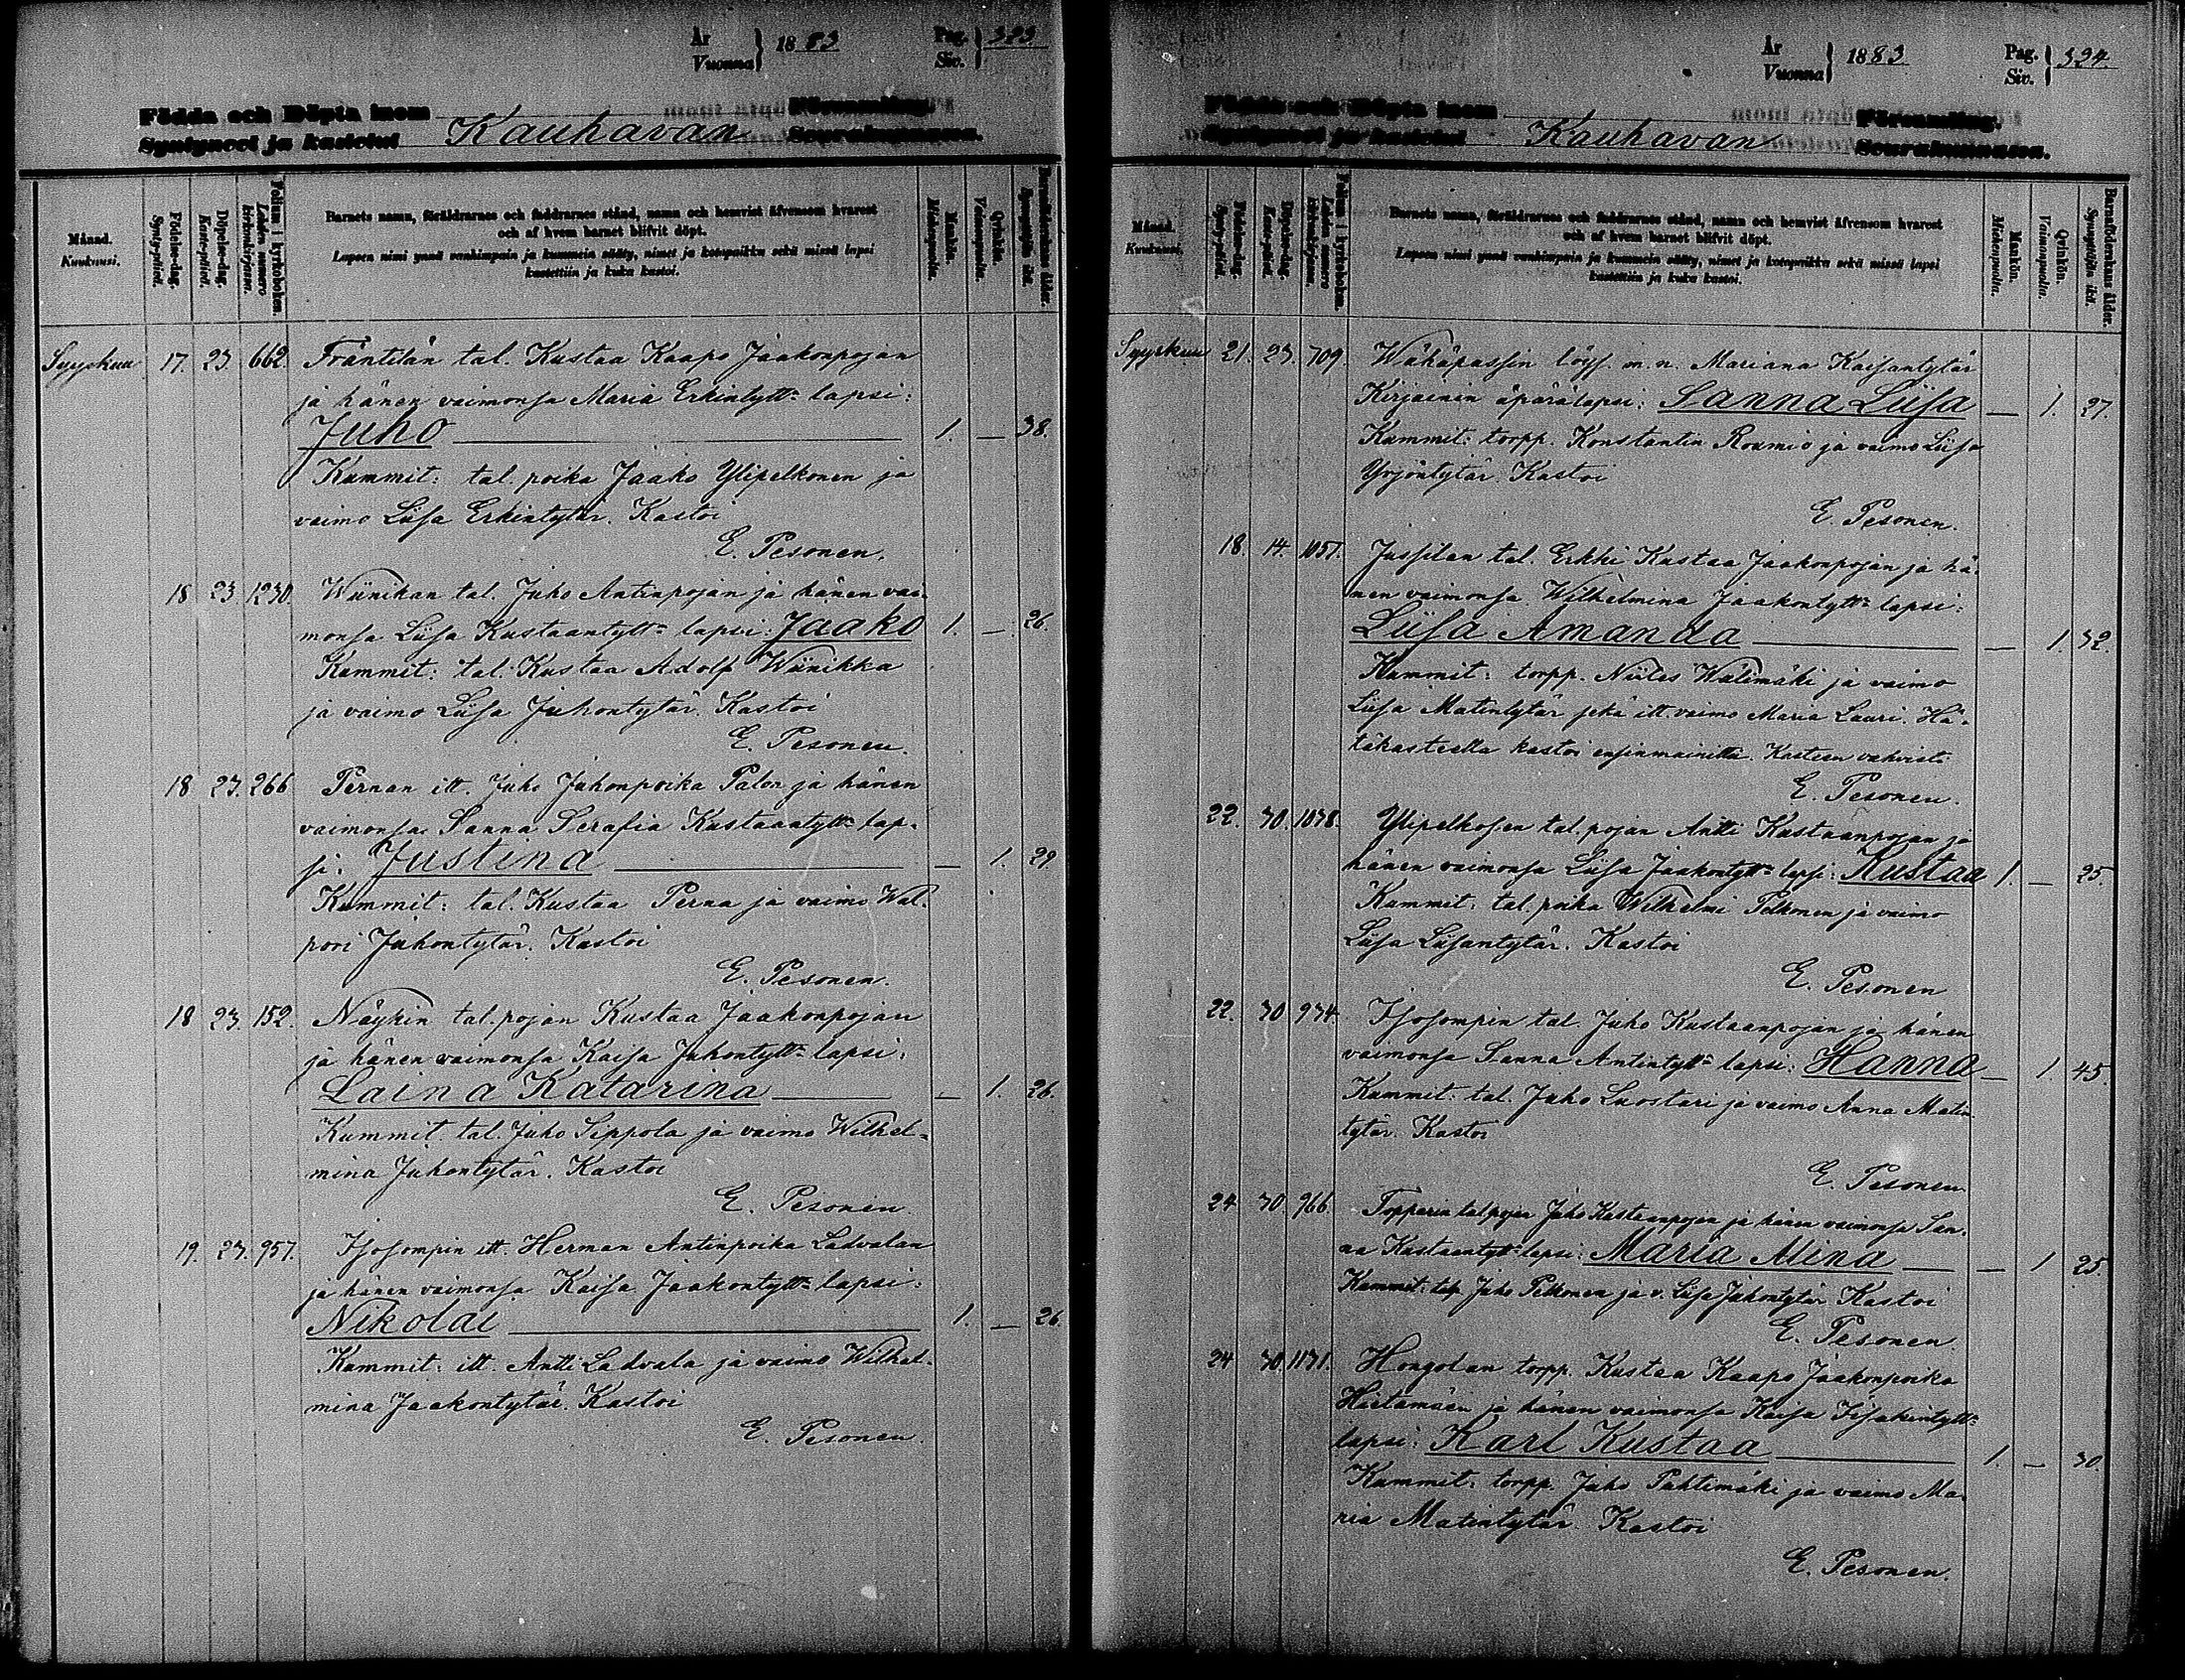 År
Vuonna } 1883 Pag.
Siv. } 323.
Födda och Döpta inom Församling.
Syntyneet ja kastetut Kauhavan Seurakunnassa.
Månad.
Kuukausi.
Födelse-dag.
Synty-päivä.
Döpelse-dag.
Kaste-päivä.
Folium i kyrkoboken.
Lehden numero kirkonkirjassa.
Barnets namn, föräldrarnes och faddrarnes stånd, namn och hemvist äfvensom hvarest
och af hvem barnet blifvit döpt.
Lapsen nimi ynnä vanhimpain ja kummein sääty, nimet ja kotopaikka sekä missä lapsi
kastettiin ja kuka kastoi.
Mankön.
Miehenpuolta.
Qvinkön.
Vaimonpuolta.
Barnaföderskans ålder.
Synnyttäjän ikä.
Syyskuu 17. 23. 662. Fräntilän tal. Kustaa Kaapo Jaakonpojan
ja hänen vaimonsa Maria Erkintytt= lapsi:
Juho 1. — 38.
Kummit: tal. poika Jaako Ylipelkonen ja
vaimo Liisa Erkintytär. Kastoi
E. Pesonen.
18 23 1230. Wiinikan tal. Juho Antinpojan ja hänen vai-
monsa Liisa Kustaantytt= lapsi: Jaako 1. — 26.
Kummit: tal. Kustaa Adolf Wiinikka
ja vaimo Liisa Juhontytär. Kastoi
E. Pesonen.
18 23. 266 Pernan itt. Juho Juhonpoika Palon ja hänen
vaimonsa Sanna Serafia Kustaantytt= lap-
si: Justina — 1. 29.
Kummit: tal. Kustaa Perna ja vaimo Wal-
pori Juhontytär. Kastoi
E. Pesonen.
18 23. 152. Näykin tal. pojan Kustaa Jaakonpojan
ja hänen vaimonsa Kaisa Juhontytt= lapsi:
Laina Katarina — 1. 26.
Kummit: tal. Juho Sippola ja vaimo Wilhel-
mina Juhontytär. Kastoi
E. Pesonen.
19. 23. 957. Isosompin itt. Herman Antinpoika Ladvalan
ja hänen vaimonsa Kaisa Jaakontytt= lapsi:
Nikolai 1. — 26.
Kummit: itt. Antti Ladvala ja vaimo Wilhel-
mina Jaakontytär. Kastoi
E. Pesonen.
År
Vuonna } 1883 Pag.
Siv. } 324.
Födda och Döpta inom Församling.
Syntyneet ja kastetut Kauhavan Seurakunnassa.
Månad.
Kuukausi.
Födelse-dag.
Synty-päivä.
Döpelse-dag.
Kaste-päivä.
Folium i kyrkoboken.
Lehden numero kirkonkirjassa.
Barnets namn, föräldrarnes och faddrarnes stånd, namn och hemvist äfvensom hvarest
och af hvem barnet blifvit döpt.
Lapsen nimi ynnä vanhimpain ja kummein sääty, nimet ja kotopaikka sekä missä lapsi
kastettiin ja kuka kastoi.
Mankön.
Miehenpuolta.
Qvinkön.
Vaimonpuolta.
Barnaföderskans ålder.
Synnyttäjän ikä.
Syyskuu 21. 23. 709. Wähäpassin löys. m. n. Mariana Kaisantytär
Kirjainin äpärälapsi: Sanna Liisa — 1. 27.
Kummit: torpp. Konstantin Roumio ja vaimo Liisa
Yrjöntytär. Kastoi
E. Pesonen.
18. 14. 1057. Jussilan tal. Erkki Kustaa Jaakonpojan ja hä-
nen vaimonsa Wilhelmina Jaakontytt= lapsi:
Liisa Amanda — 1. 32.
Kummit: torpp. Niiles Wälimäki ja vaimo
Liisa Matintytär sekä itt. vaimo Maria Lauri. Hä-
täkasteella kastoi ensinmainittu. Kasteen vahvisti
E. Pesonen.
22. 30. 1038. Ylipelkosen tal. pojan Antti Kustaanpojan ja
hänen vaimonsa Liisa Jaakontytt= lapsi: Kustaa 1. — 25.
Kummit: tal. poika Wilhelmi Pelkonen ja vaimo
Liisa Liisantytär. Kastoi
E. Pesonen
22. 30 934. Isosompin tal. Juho Kustaanpojan ja hänen
vaimonsa Sanna Antintytt= lapsi: Hanna — 1. 45.
Kummit: tal. Juho Luostari ja vaimo Anna Matin-
tytär. Kastoi
E. Pesonen
24 30 966. Topparin tal. pojan Juho Kustaanpojan ja hänen vaimonsa San-
na Kustaantytt= lapsi: Maria Alina — 1 25.
Kummit: tal. Juho Pelkonen ja v. Liisa Juhontytär Kastoi
E. Pesonen.
24 30. 1131. Hongolan torpp. Kustaa Kaapo Jaakonpoika
Hietamäen ja hänen vaimonsa Kaisa Iisakintytt=
lapsi: Karl Kustaa 1. — 30.
Kummit: torpp. Juho Pahtimäki ja vaimo Ma-
ria Matintytär. Kastoi
E. Pesonen.